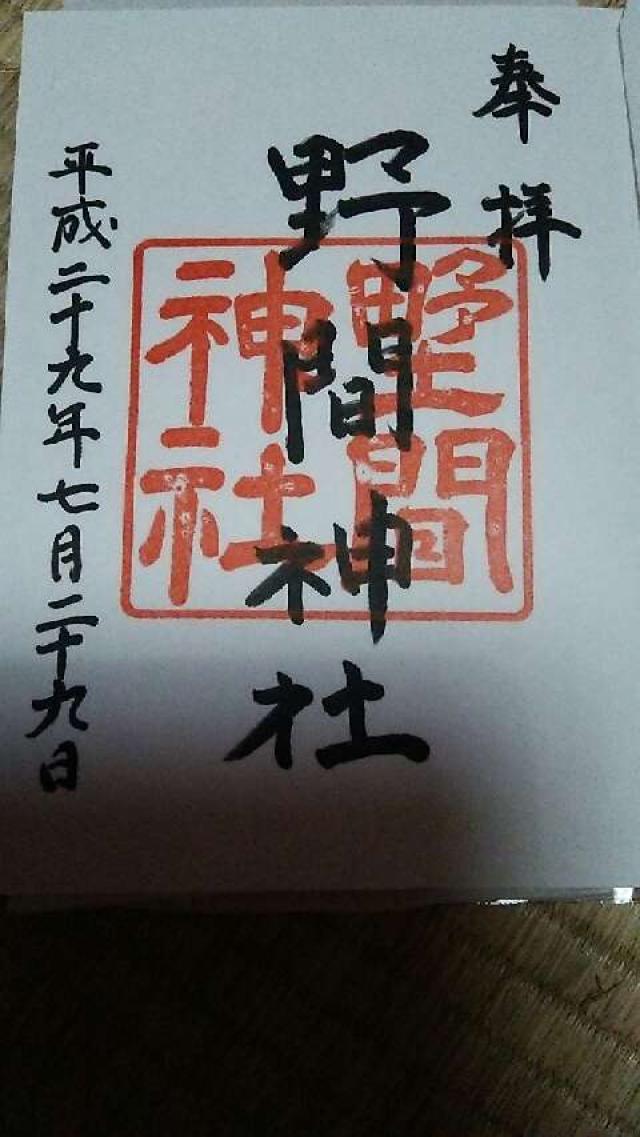 奉拝
野間神社
野間
神社
平成二十九年七月二十九日